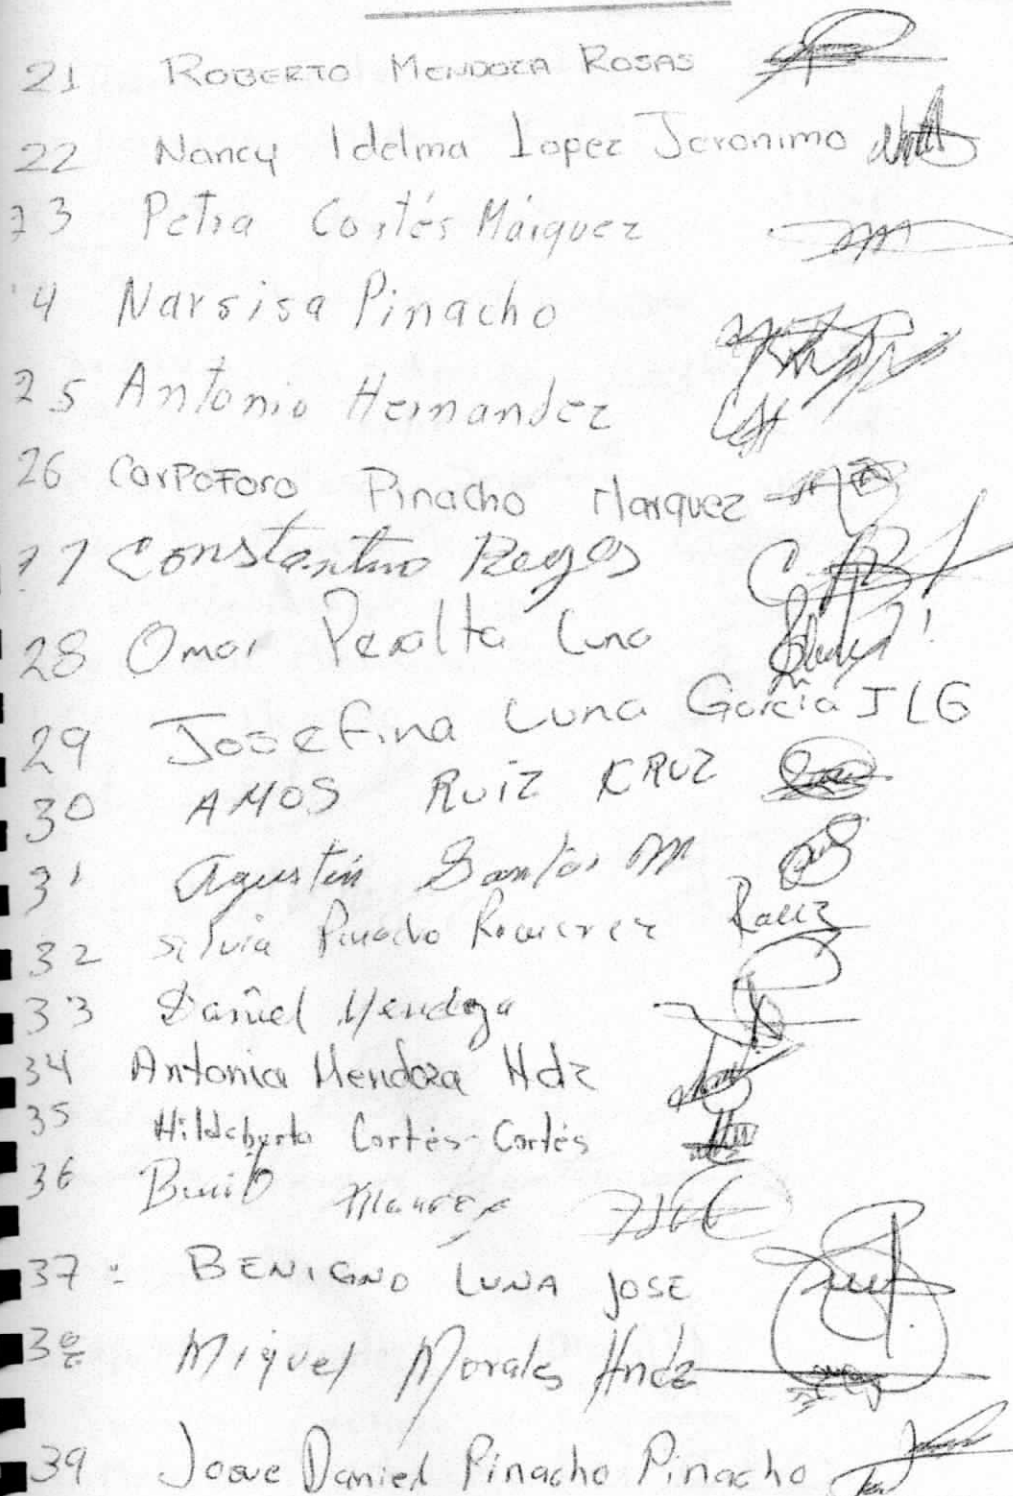 21 ROBERTO MENDOZA ROSAS
22 Nancy Idelma Lopez Jeronimo
23 Petra Cortés Márquez
4 Narsisa Pinacho
25 Antonio Hernandez
26 CarpoForo Pinacho Marquez
27 Constantino Reyes
28 Omar Peralta Luna
29 Josefina Luna García JLG
30 AMOS RUIZ CRUZ
31 Agustín Santos M
32 Silvia Pinacho Ramirez
33 Daniel Mendoza
34 Antonia Mendoza Hdz
35 Hildeberto Cortés-Cortés
36 Benito
37 BENIGNO LUNA JOSE
38 Miguel Morales Hndz
39 Josue Daniel Pinacho Pinacho